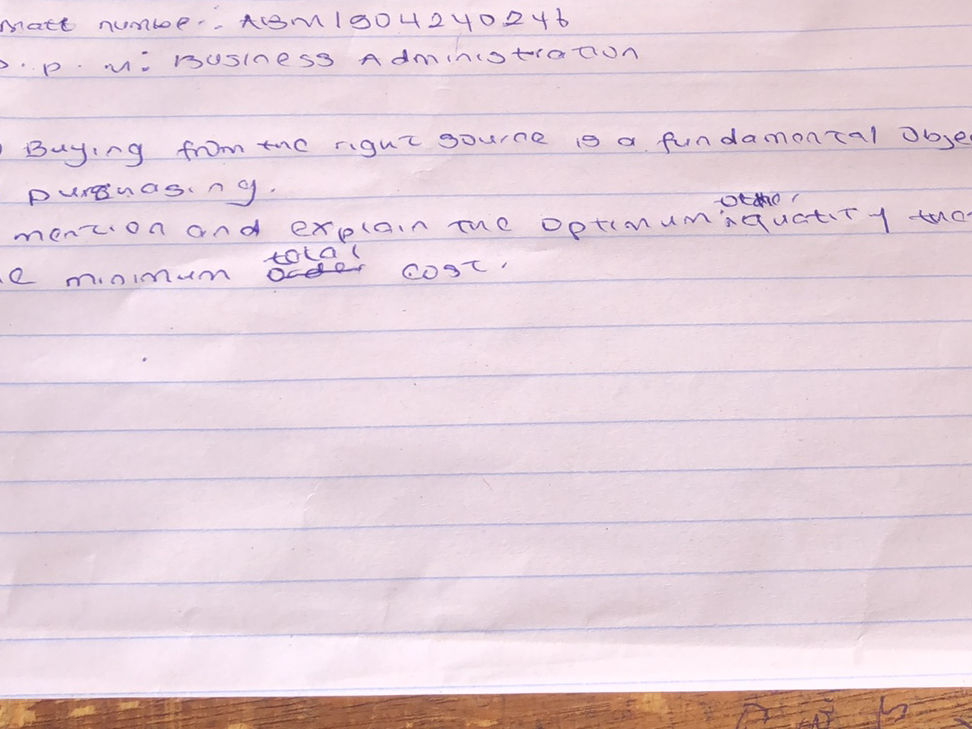 Matt number: ABM1904240246
D.p.m: Business Administration
Buying from the right source is a fundamental Obje
purchasing.
mention and explain the optimum order quatity the
e minimum total cost.